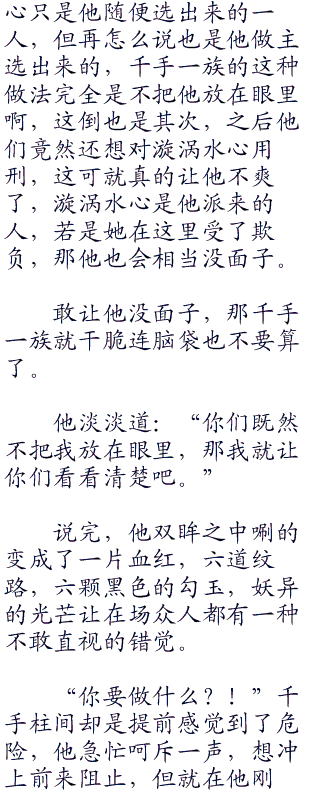 心只是他随便选出来的一
人，但再怎么说也是他做主
选出来的，千手一族的这种
做法完全是不把他放在眼里
啊，这倒也是其次，之后他
们竟然还想对漩涡水心用
刑，这可就真的让他不爽
了，漩涡水心是他派来的
人，若是她在这里受了欺
负，那他也会相当没面子。
敢让他没面子，那千手
一族就干脆连脑袋也不要算
了。
他淡淡道：“你们既然
不把我放在眼里，那我就让
你们看看清楚吧。”
说完，他双眸之中唰的
变成了一片血红，六道纹
路，六颗黑色的勾玉，妖异
的光芒让在场众人都有一种
不敢直视的错觉。
“你要做什么？！”千
手柱间却是提前感觉到了危
险，他急忙呵斥一声，想冲
上前来阻止，但就在他刚